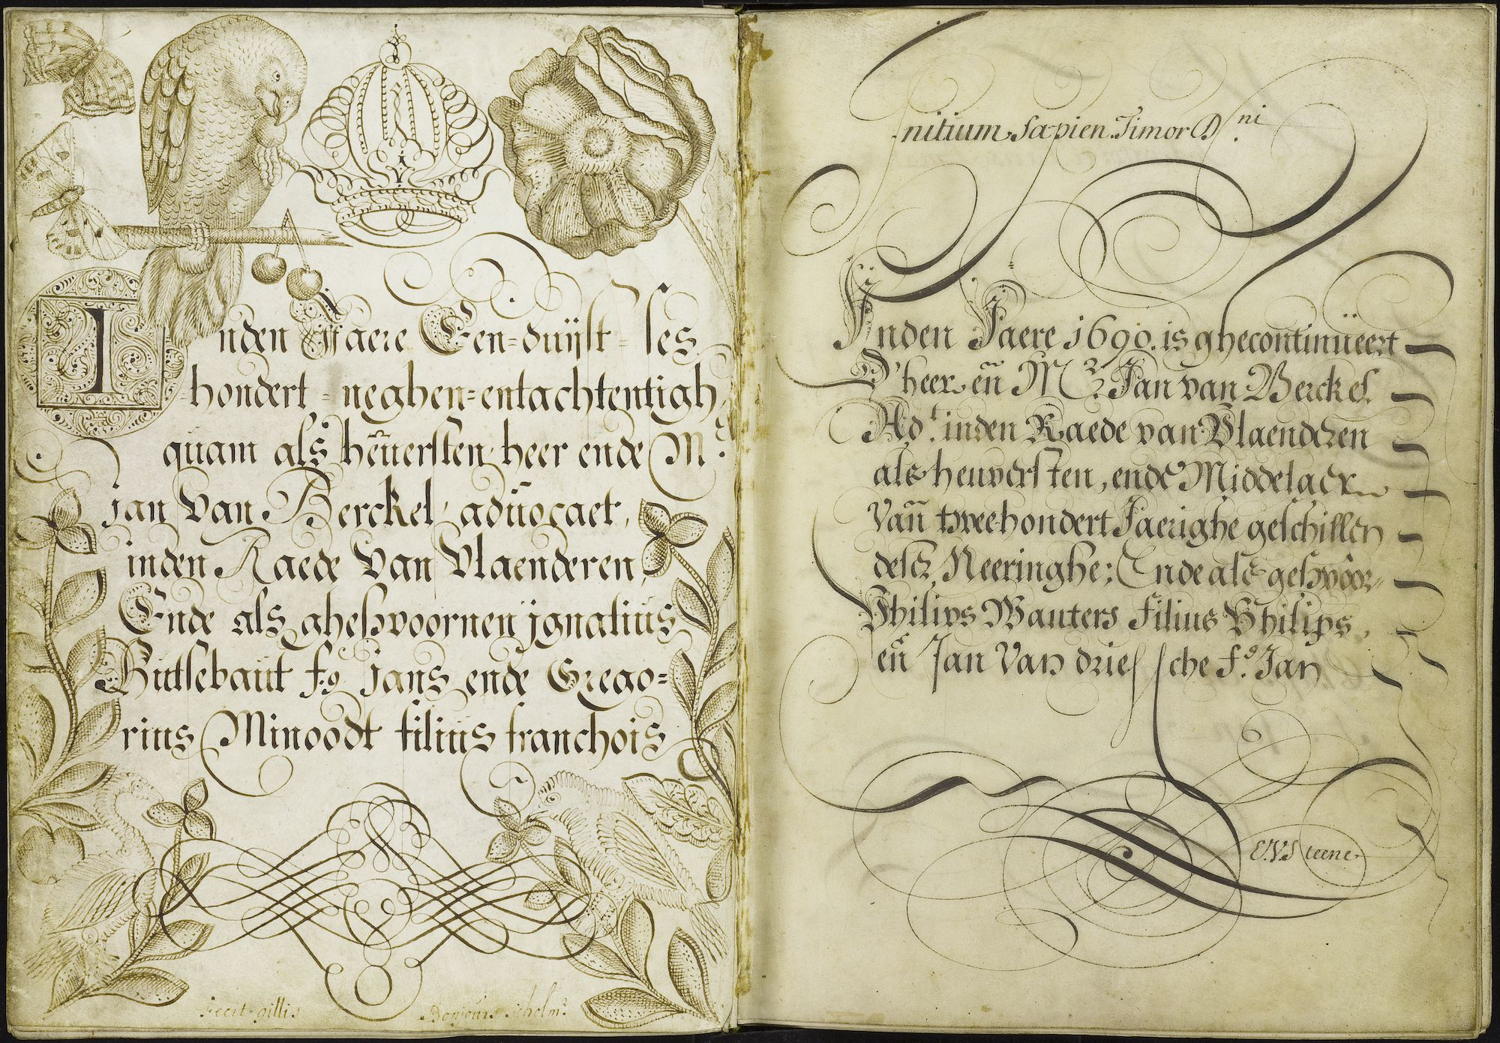 Inden Jaere Een=duijst=ses
hondert=neghen=entachtentigh
quam als heuersten heer ende Mr.
jan Van Berckel aduocaet,
inden Raede Van Vlaenderen
Ende als gheswornen jgnatius
Butsebaut fs. Jans ende Grego=
rius Minoodt filius franchois
fecit gillis
Initium Sapien. Timor Dni
Inden Jaere 1690. is ghecontinueert
D'heer en Mr. Jan van Berckel
Adt. inden Raede van Vlaenderen
als heuversten, ende Middelaer
Van tweehondert Jaerighe geschillen
deser Neeringhe; Ende als geswoor
Philips Wauters filius Philips,
en Jan Van driessche fs. Jan
E.V.Steene.